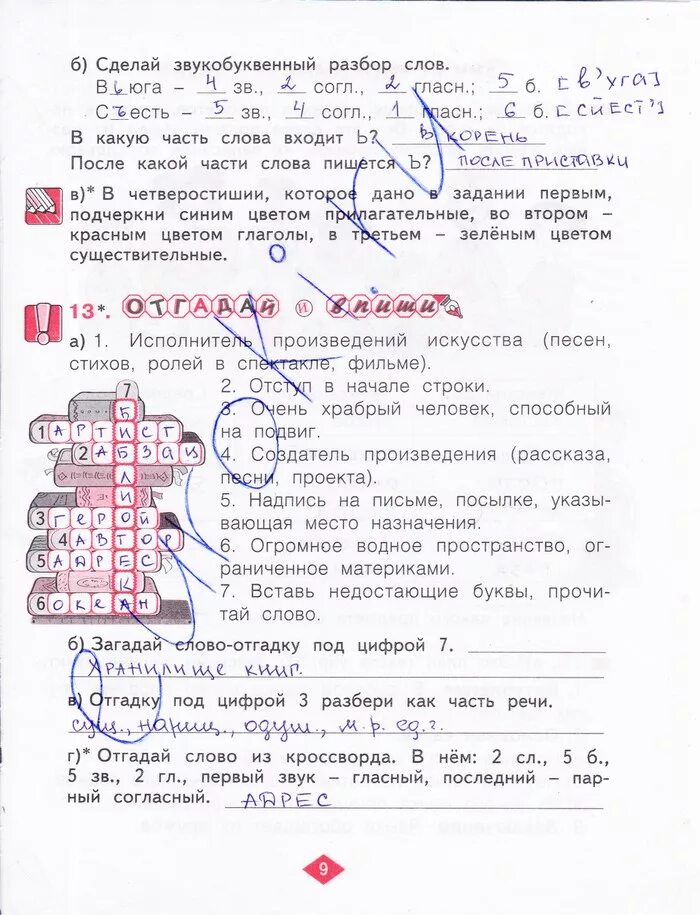 б) Сделай звукобуквенный разбор слов.
Вьюга – 4 зв., 2 согл., 2 гласн.; 5 б. [в'уга]
Съесть – 5 зв., 4 согл., 1 гласн.; 6 б. [сйест']
В какую часть слова входит Ь? В КОРЕНЬ
После какой части слова пишется Ъ? ПОСЛЕ ПРИСТАВКИ
в)* В четверостишии, которое дано в задании первым,
подчеркни синим цветом прилагательные, во втором –
красным цветом глаголы, в третьем – зелёным цветом
существительные.
13*. ОТГАДАЙ и впиши
а) 1. Исполнитель произведений искусства (песен,
стихов, ролей в спектакле, фильме).
2. Отступ в начале строки.
3. Очень храбрый человек, способный
на подвиг.
4. Создатель произведения (рассказа,
песни, проекта).
5. Надпись на письме, посылке, указы-
вающая место назначения.
6. Огромное водное пространство, ог-
раниченное материками.
7. Вставь недостающие буквы, прочи-
тай слово.
7
Б
1 АРТИСТ
2 АБЗАЦ
Л
И
3 ГЕРОЙ
4 АВТОР
5 АДРЕС
К
6 ОКЕАН
б) Загадай слово-отгадку под цифрой 7.
ХРАНИЛИЩЕ КНИГ.
в) Отгадку под цифрой 3 разбери как часть речи.
сущ., нариц., одуш., м.р. ед.ч.
г)* Отгадай слово из кроссворда. В нём: 2 сл., 5 б.,
5 зв., 2 гл., первый звук – гласный, последний – пар-
ный согласный. АДРЕС
9